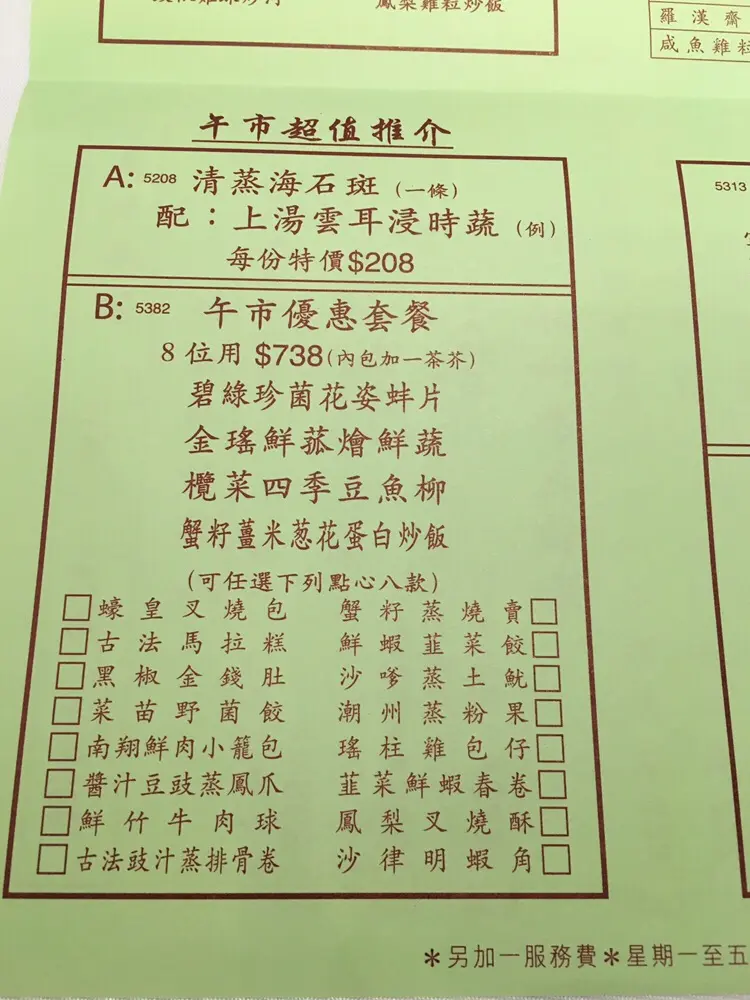 鳳梨雞粒炒飯
羅漢齋
咸魚雞粒
午市超值推介
A: 5208 清蒸海石斑 (一條)
配：上湯雲耳浸時蔬 (例)
每份特價$208
B: 5382 午市優惠套餐
8位用 $738(內包加一茶芥)
碧綠珍菌花姿蚌片
金瑤鮮菰燴鮮蔬
欖菜四季豆魚柳
蟹籽薑米葱花蛋白炒飯
(可任選下列點心八款)
蠔皇叉燒包 蟹籽蒸燒賣
古法馬拉糕 鮮蝦韮菜餃
黑椒金錢肚 沙嗲蒸土魷
菜苗野菌餃 潮州蒸粉果
南翔鮮肉小籠包 瑤柱雞包仔
醬汁豆豉蒸鳳爪 韮菜鮮蝦春卷
鮮竹牛肉球 鳳梨叉燒酥
古法豉汁蒸排骨卷 沙律明蝦角
5313
＊另加一服務費＊星期一至五